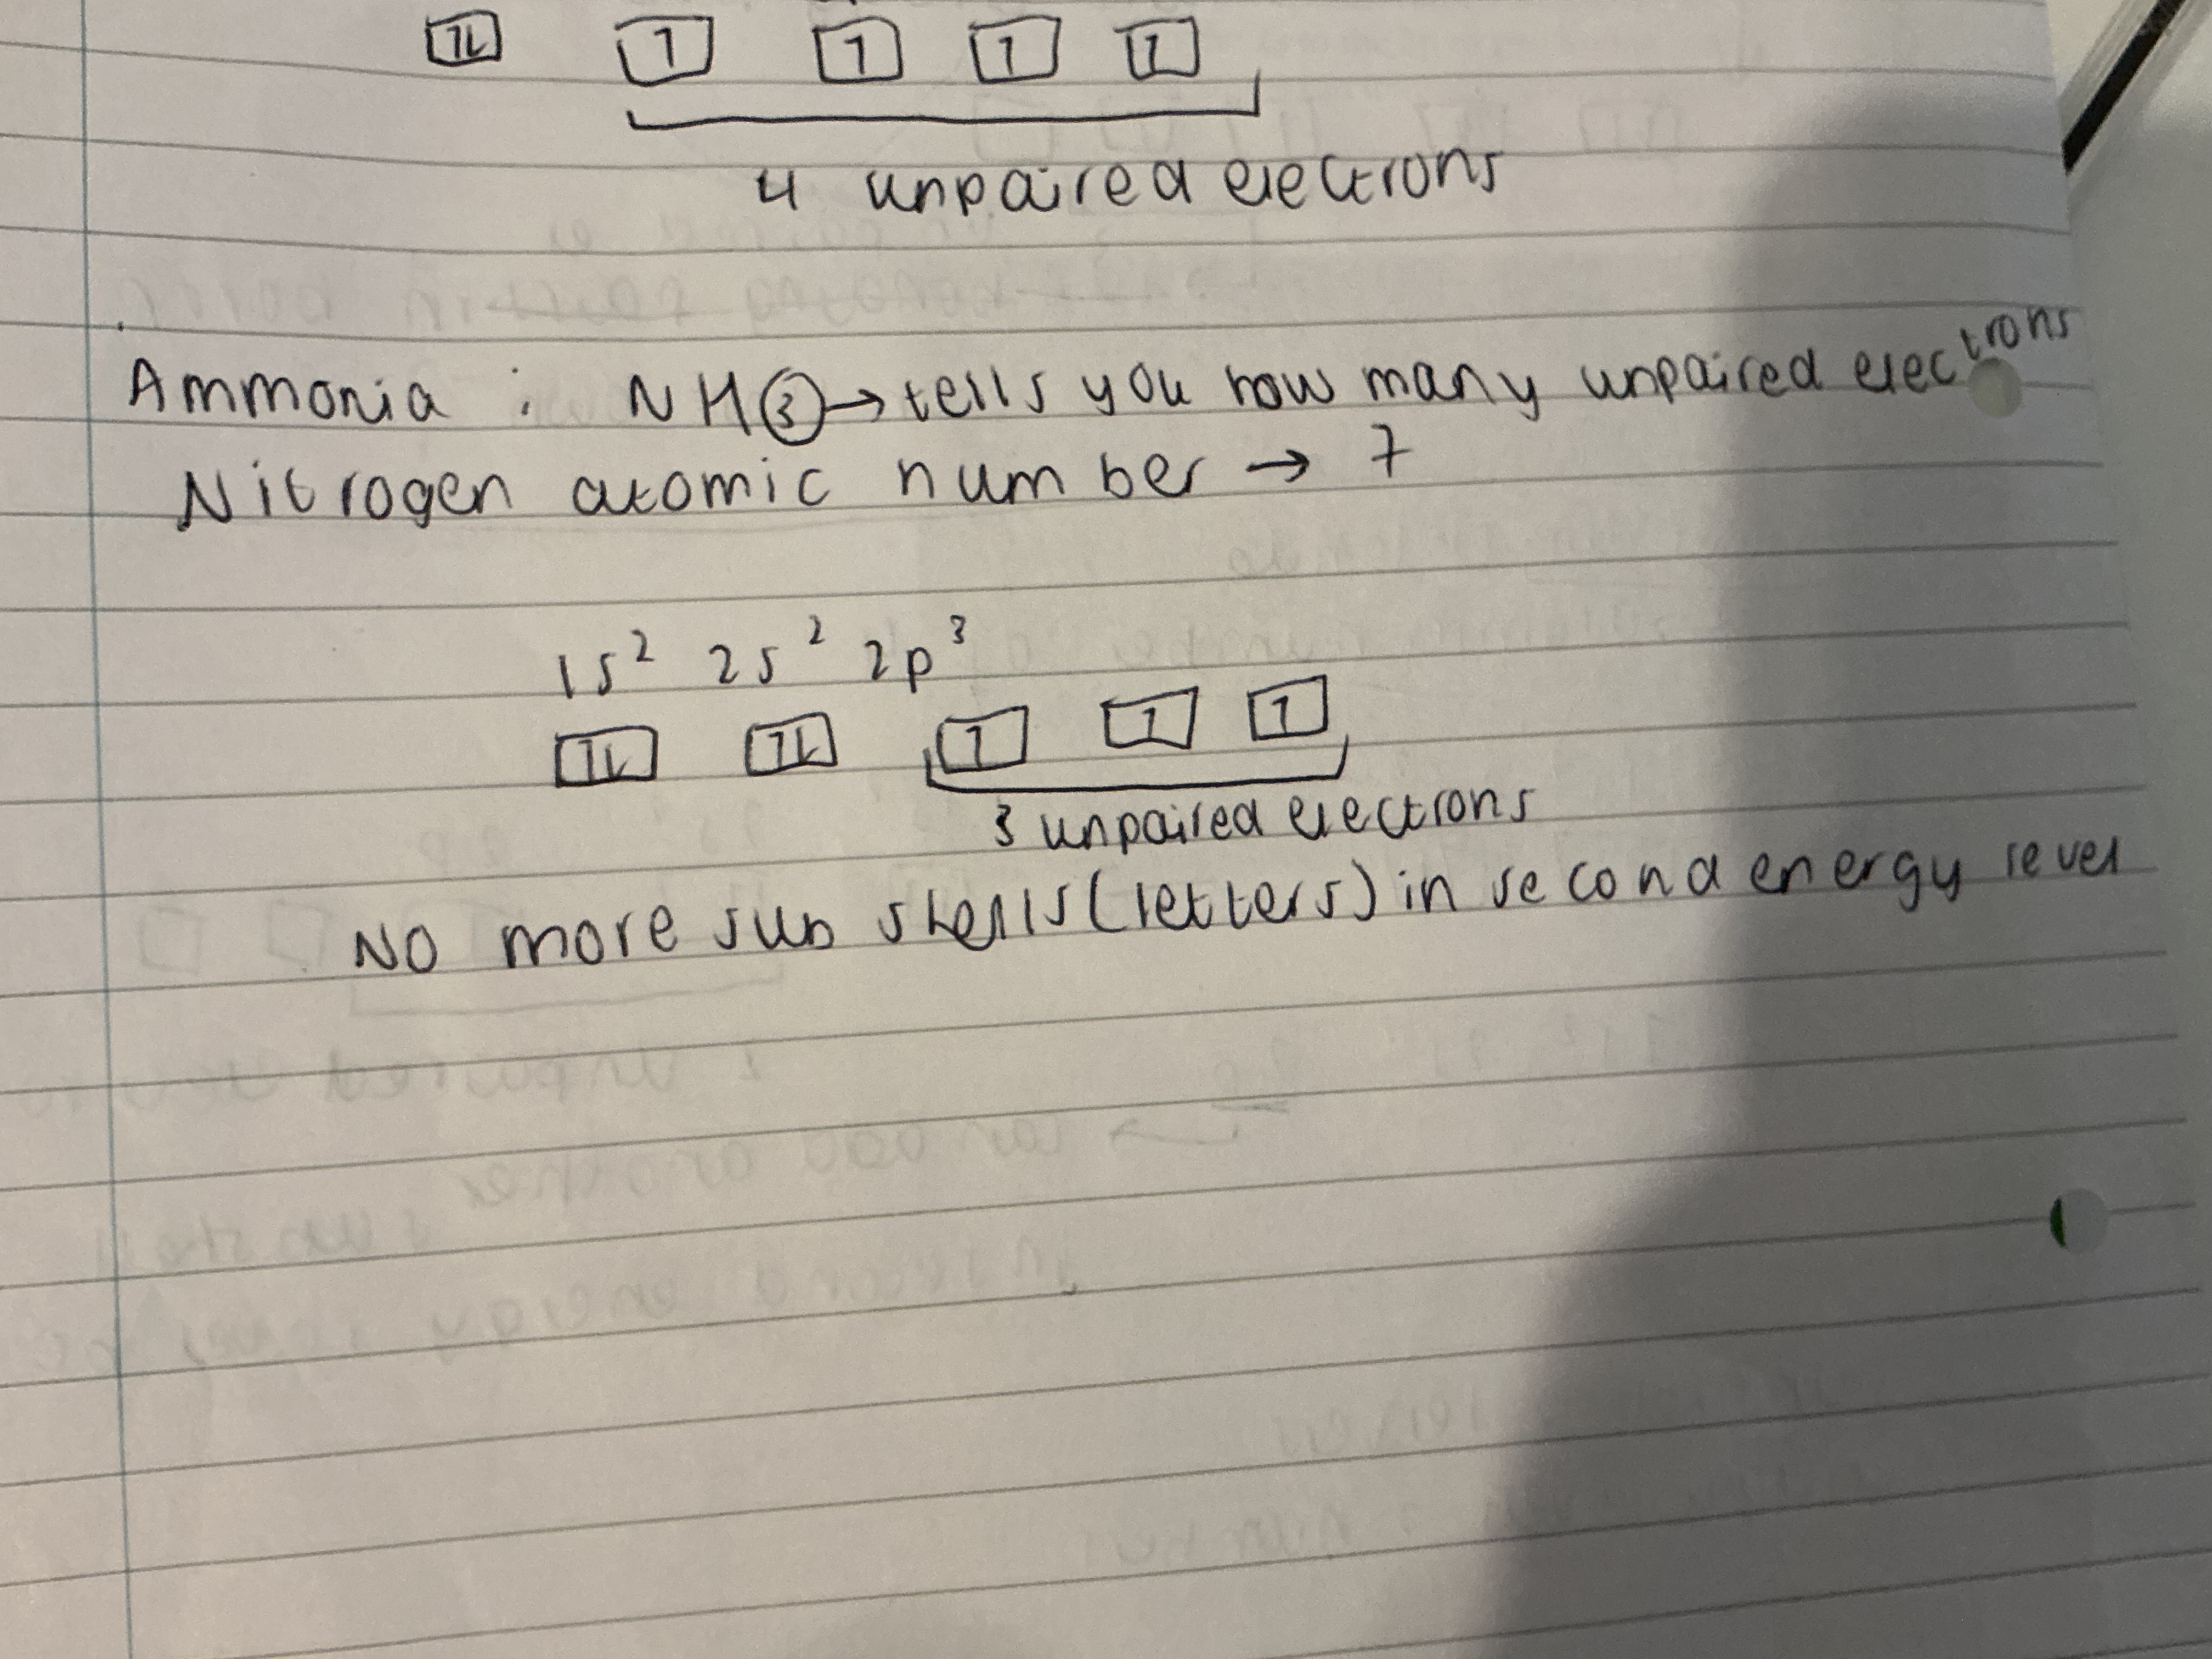 1L 1 1 1 1
4 unpaired electrons
Ammonia : NH3 → tells you how many unpaired electrons
Nitrogen atomic number → 7
1s² 2s² 2p³
1L 1L 1 1 1
3 unpaired electrons
No more sub shells (letters) in second energy level